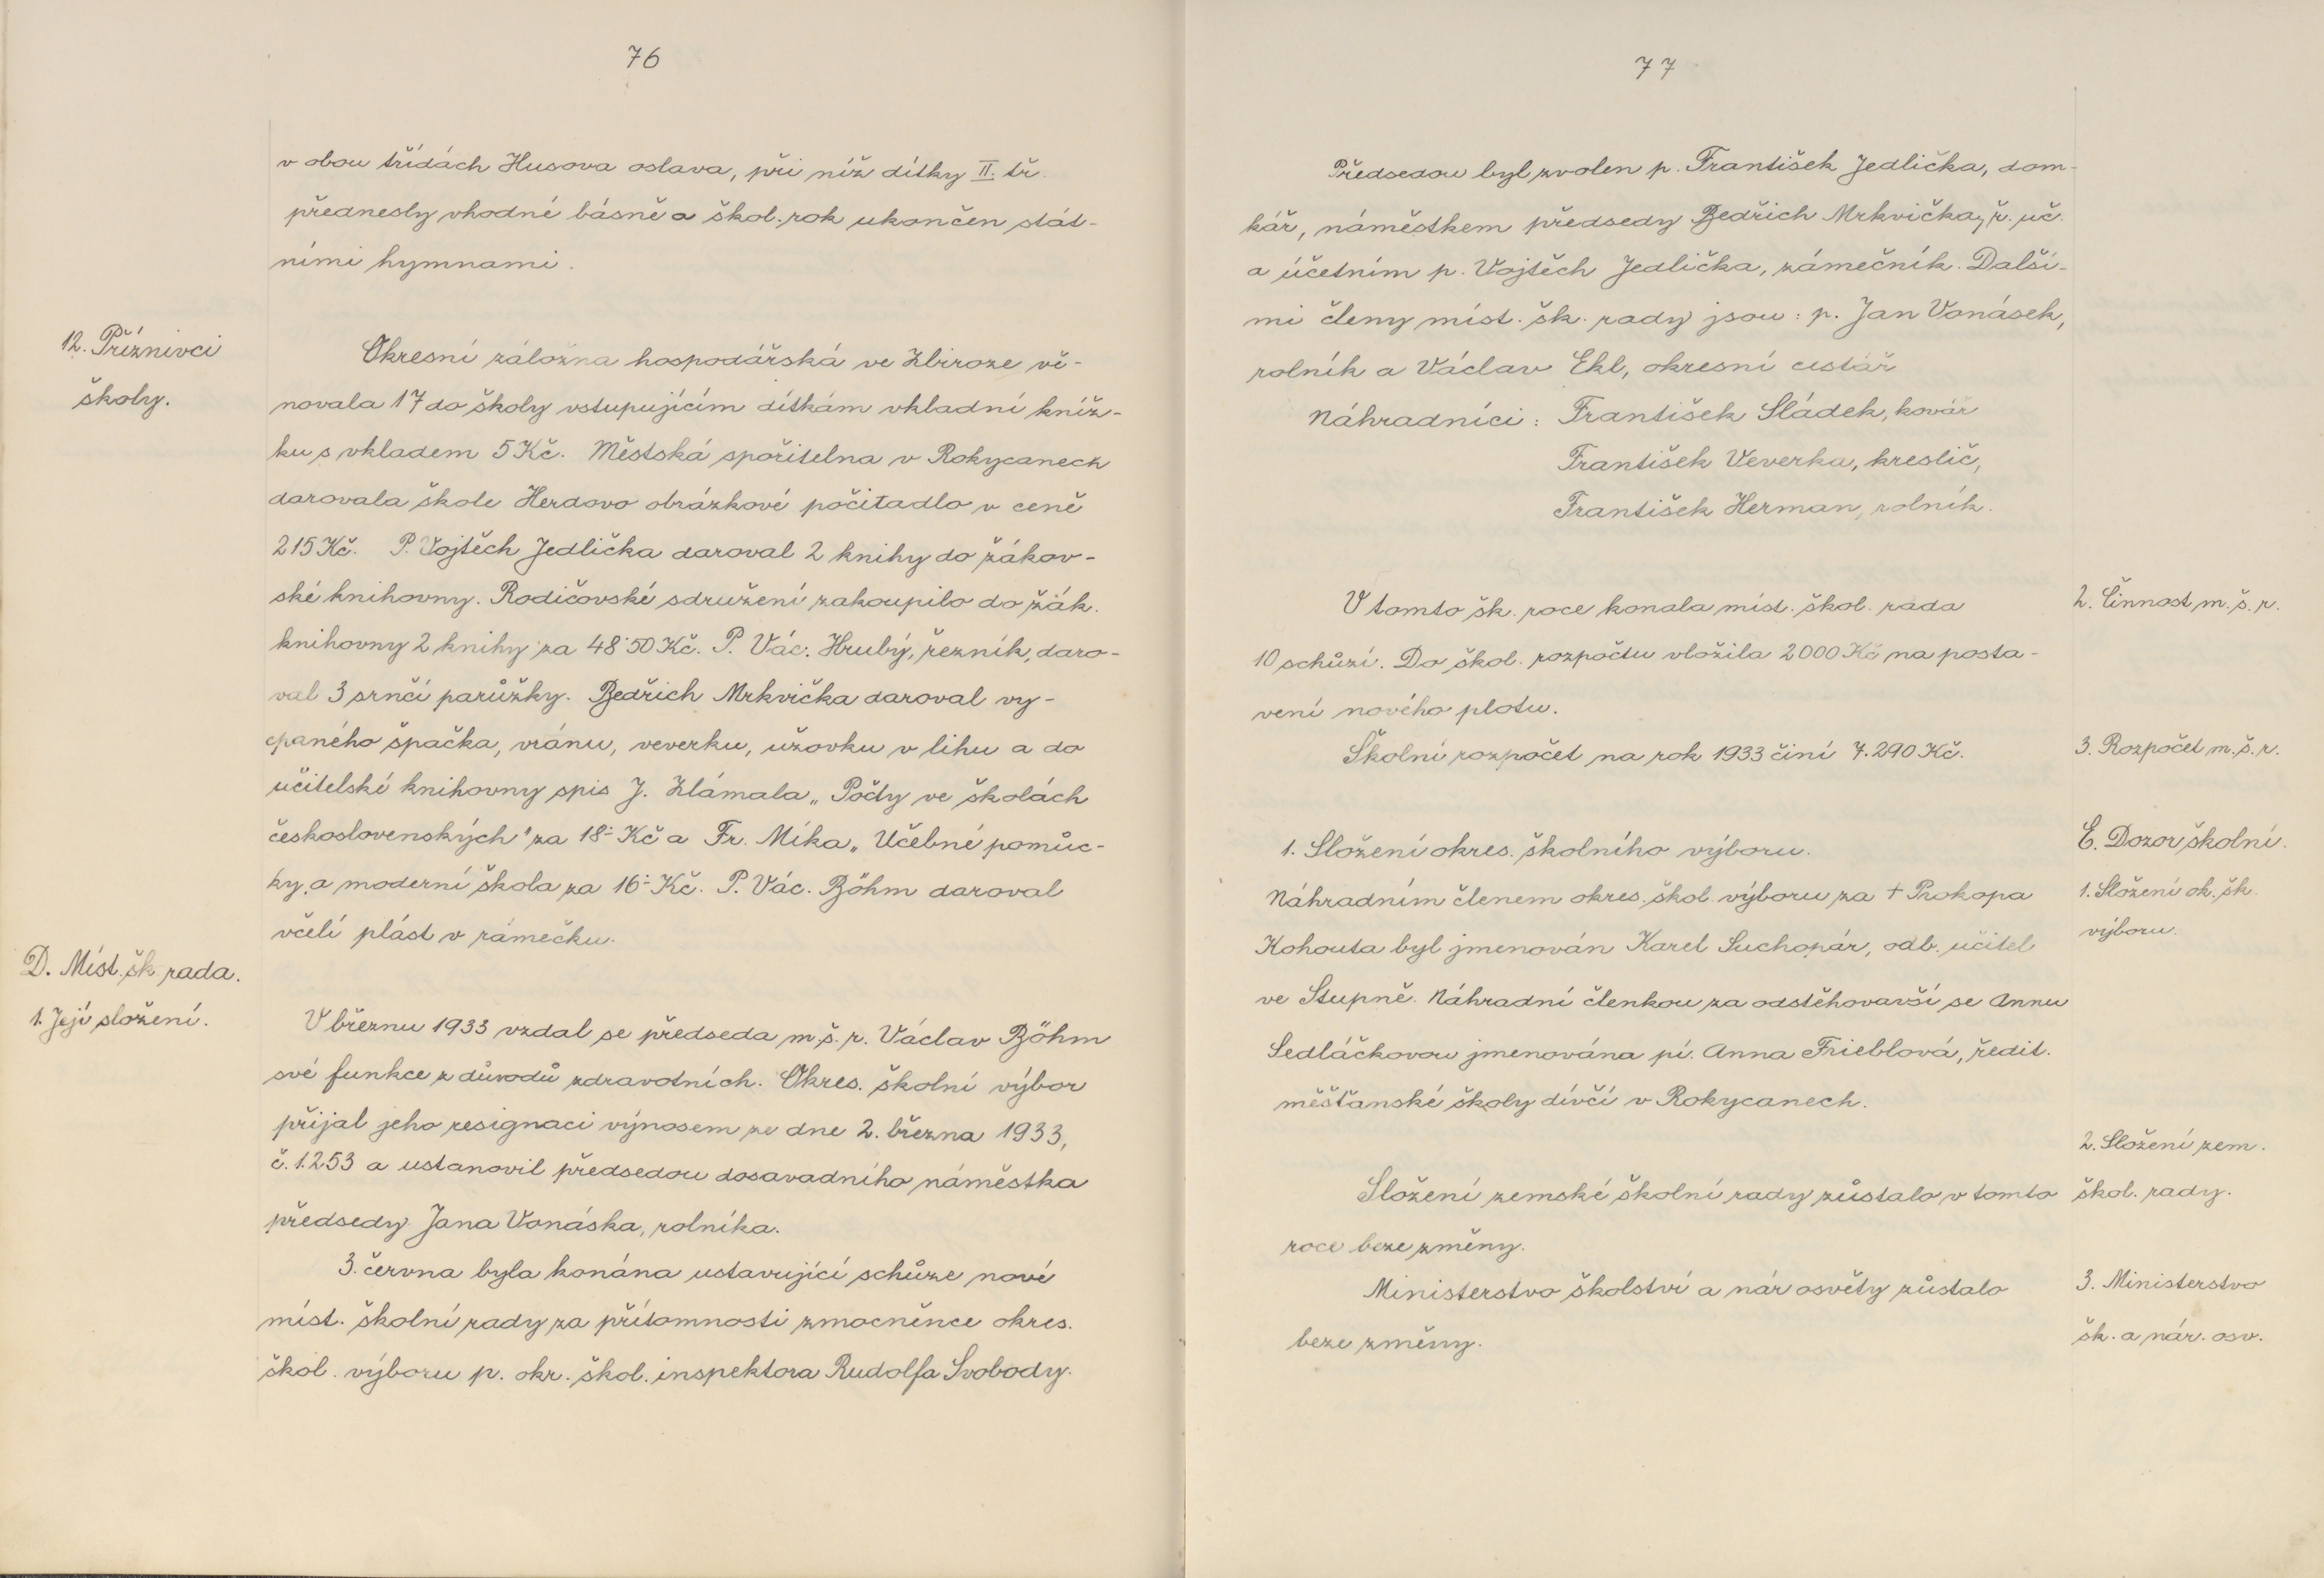 76
v obou třídách Husova oslava, při níž dítky II. tř.
přednesly vhodné básně a škol. rok ukončen stát-
ními hymnami.
12. Příznivci
školy.
Okresní záložna hospodářská ve Zbiroze vě-
novala 17 do školy vstupujícím dítkám vkladní kníž-
ku s vkladem 5 Kč. Městská spořitelna v Rokycanech
darovala škole Herdovo obrázkové počitadlo v ceně
215 Kč. P. Vojtěch Jedlička daroval 2 knihy do žákov-
ské knihovny. Rodičovské sdružení zakoupilo do žák.
knihovny 2 knihy za 48·50 Kč. P. Vác. Hrubý, řezník, daro-
val 3 srnčí parůžky. Bedřich Mrkvička daroval vy-
cpaného špačka, vránu, veverku, užovku v lihu a do
učitelské knihovny spis J. Zlámala „Počty ve školách
československých" za 18·- Kč a Fr. Mika „Učebné pomůc-
ky a moderní škola za 16·- Kč. P. Vác. Böhm daroval
včelí plást v rámečku.
D. Míst. šk. rada.
1. Její složení.
V březnu 1933 vzdal se předseda m. š. r. Václav Böhm
své funkce z důvodů zdravotních. Okres. školní výbor
přijal jeho resignaci výnosem ze dne 2. března 1933,
č. 1.253 a ustanovil předsedou dosavadního náměstka
předsedy Jana Vonáska, rolníka.
3. června byla konána ustavující schůze nové
míst. školní rady za přítomnosti zmocněnce okres.
škol. výboru p. okr. škol. inspektora Rudolfa Svobody.
77
Předsedou byl zvolen p. František Jedlička, dom-
kář, náměstkem předsedy Bedřich Mrkvička, ř. uč.
a účetním p. Vojtěch Jedlička, zámečník. Další-
mi členy míst. šk. rady jsou: p. Jan Vonásek,
rolník a Václav Ekl, okresní cestář
Náhradníci: František Sládek, kovář
František Veverka, kreslič,
František Herman, rolník.
V tomto šk. roce konala míst. škol. rada
2. Činnost m. š. r.
10 schůzí. Do škol. rozpočtu vložila 2000 Kč na posta-
vení nového plotu.
Školní rozpočet na rok 1933 činí 7.290 Kč.
3. Rozpočet m. š. r.
E. Dozor školní.
1. Složení okres. školního výboru.
1. Složení ok. šk.
výboru.
Náhradním členem okres. škol. výboru za + Prokopa
Kohouta byl jmenován Karel Suchopár, odb. učitel
ve Stupně. Náhradní členkou za odstěhovavší se Annu
Sedláčkovou jmenována pí. Anna Frieblová, ředit.
měšťanské školy dívčí v Rokycanech.
2. Složení zem.
škol. rady.
Složení zemské školní rady zůstalo v tomto
roce beze změny.
Ministerstvo školství a nár osvěty zůstalo
3. Ministerstvo
šk. a nár. osv.
beze změny.